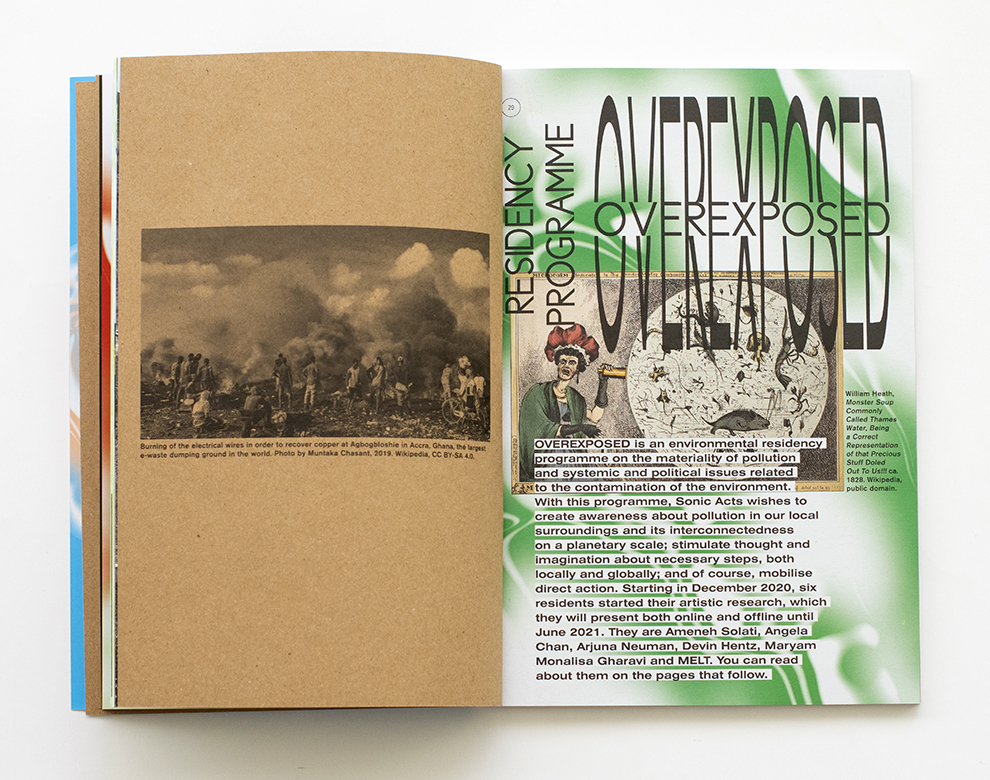 Burning of the electrical wires in order to recover copper at Agbogbloshie in Accra, Ghana, the largest
e-waste dumping ground in the world. Photo by Muntaka Chasant, 2019. Wikipedia, CC BY-SA 4.0.
29
RESIDENCY
PROGRAMME
OVEREXPOSED
OVEREXPOSED
OVEREXPOSED
William Heath,
Monster Soup
Commonly
Called Thames
Water, Being
a Correct
Representation
of that Precious
Stuff Doled
Out To Us!!! ca.
1828. Wikipedia,
public domain.
OVEREXPOSED is an environmental residency
programme on the materiality of pollution
and systemic and political issues related
to the contamination of the environment.
With this programme, Sonic Acts wishes to
create awareness about pollution in our local
surroundings and its interconnectedness
on a planetary scale; stimulate thought and
imagination about necessary steps, both
locally and globally; and of course, mobilise
direct action. Starting in December 2020, six
residents started their artistic research, which
they will present both online and offline until
June 2021. They are Ameneh Solati, Angela
Chan, Arjuna Neuman, Devin Hentz, Maryam
Monalisa Gharavi and MELT. You can read
about them on the pages that follow.